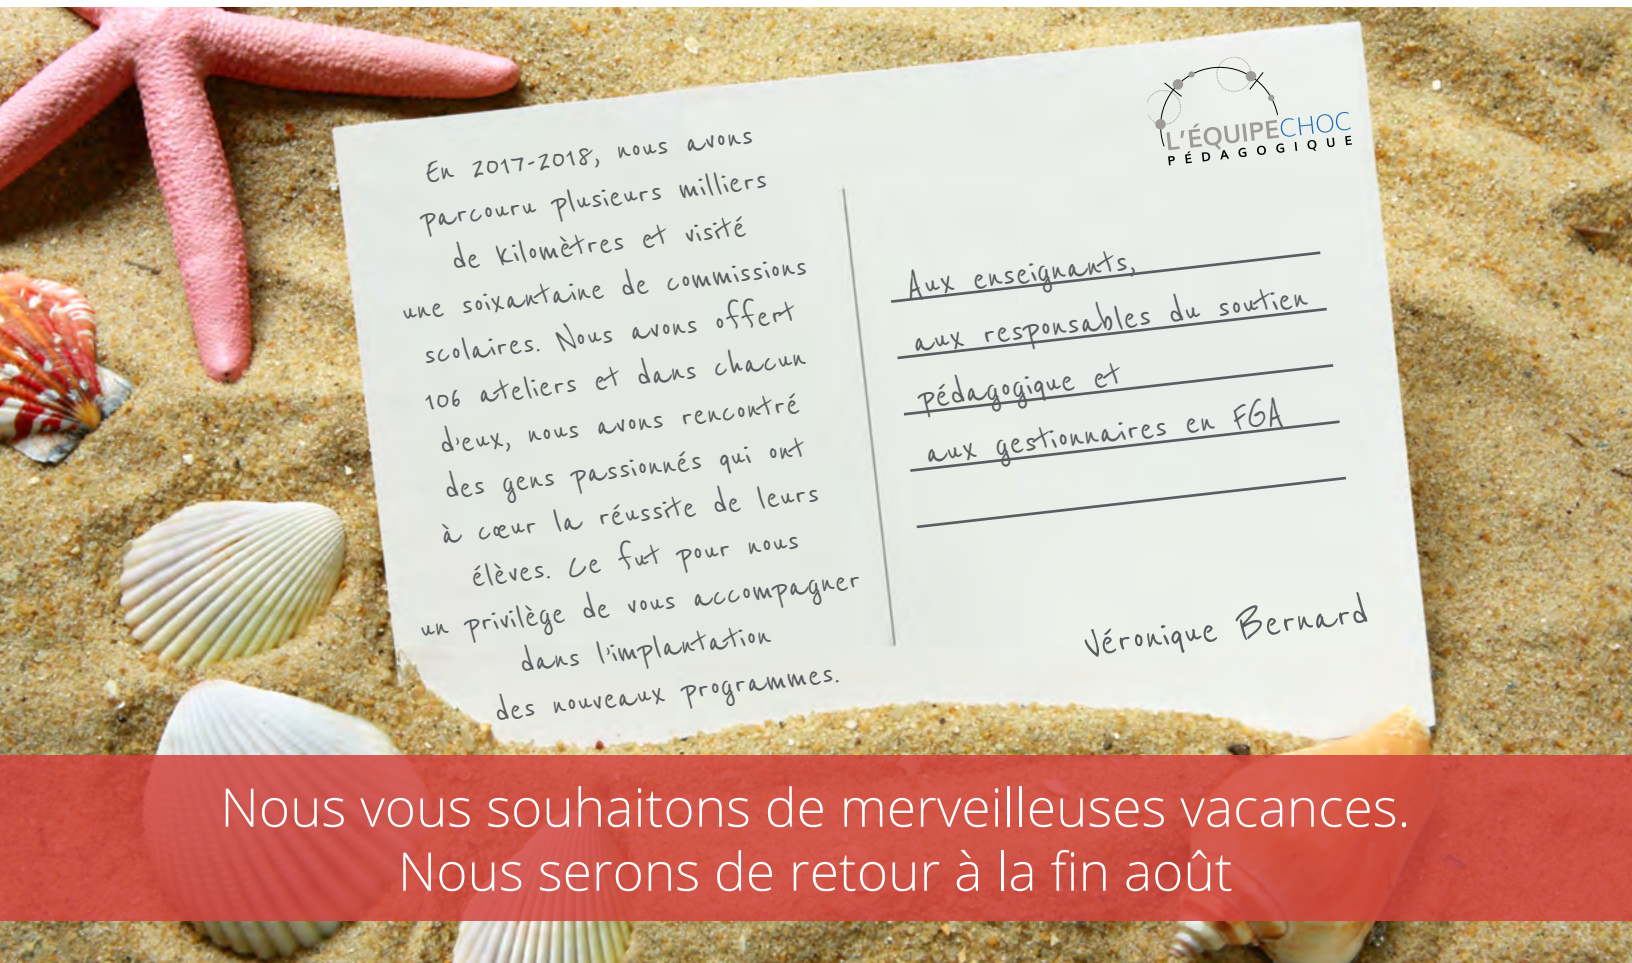 En 2017-2018, nous avons
parcouru plusieurs milliers
de kilomètres et visité
une soixantaine de commissions
scolaires. Nous avons offert
106 ateliers et dans chacun
d'eux, nous avons rencontré
des gens passionnés qui ont
à cœur la réussite de leurs
élèves. Ce fut pour nous
un privilège de vous accompagner
dans l'implantation
des nouveaux programmes.
L'ÉQUIPECHOC
PÉDAGOGIQUE
Aux enseignants,
aux responsables du soutien
pédagogique et
aux gestionnaires en FGA
Véronique Bernard
Nous vous souhaitons de merveilleuses vacances.
Nous serons de retour à la fin août